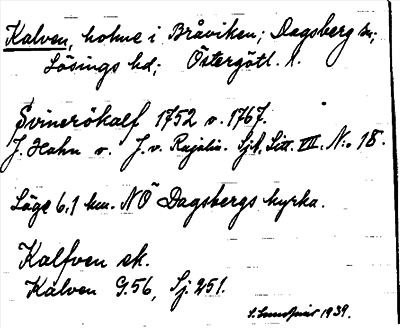 Kalven, holme i Bråviken; Dagsberg sn;
Lösings hd; Östergötl. l.
Svinerökalf 1752 o. 1767.
J. Hahn o. J. v. Rajalin. Sjk. Litt. VII. N:o 18.
Läge 6,1 km. NÖ Dagsbergs kyrka.
Kalfven ek.
Kalven G.56, Sj. 251.
1939.